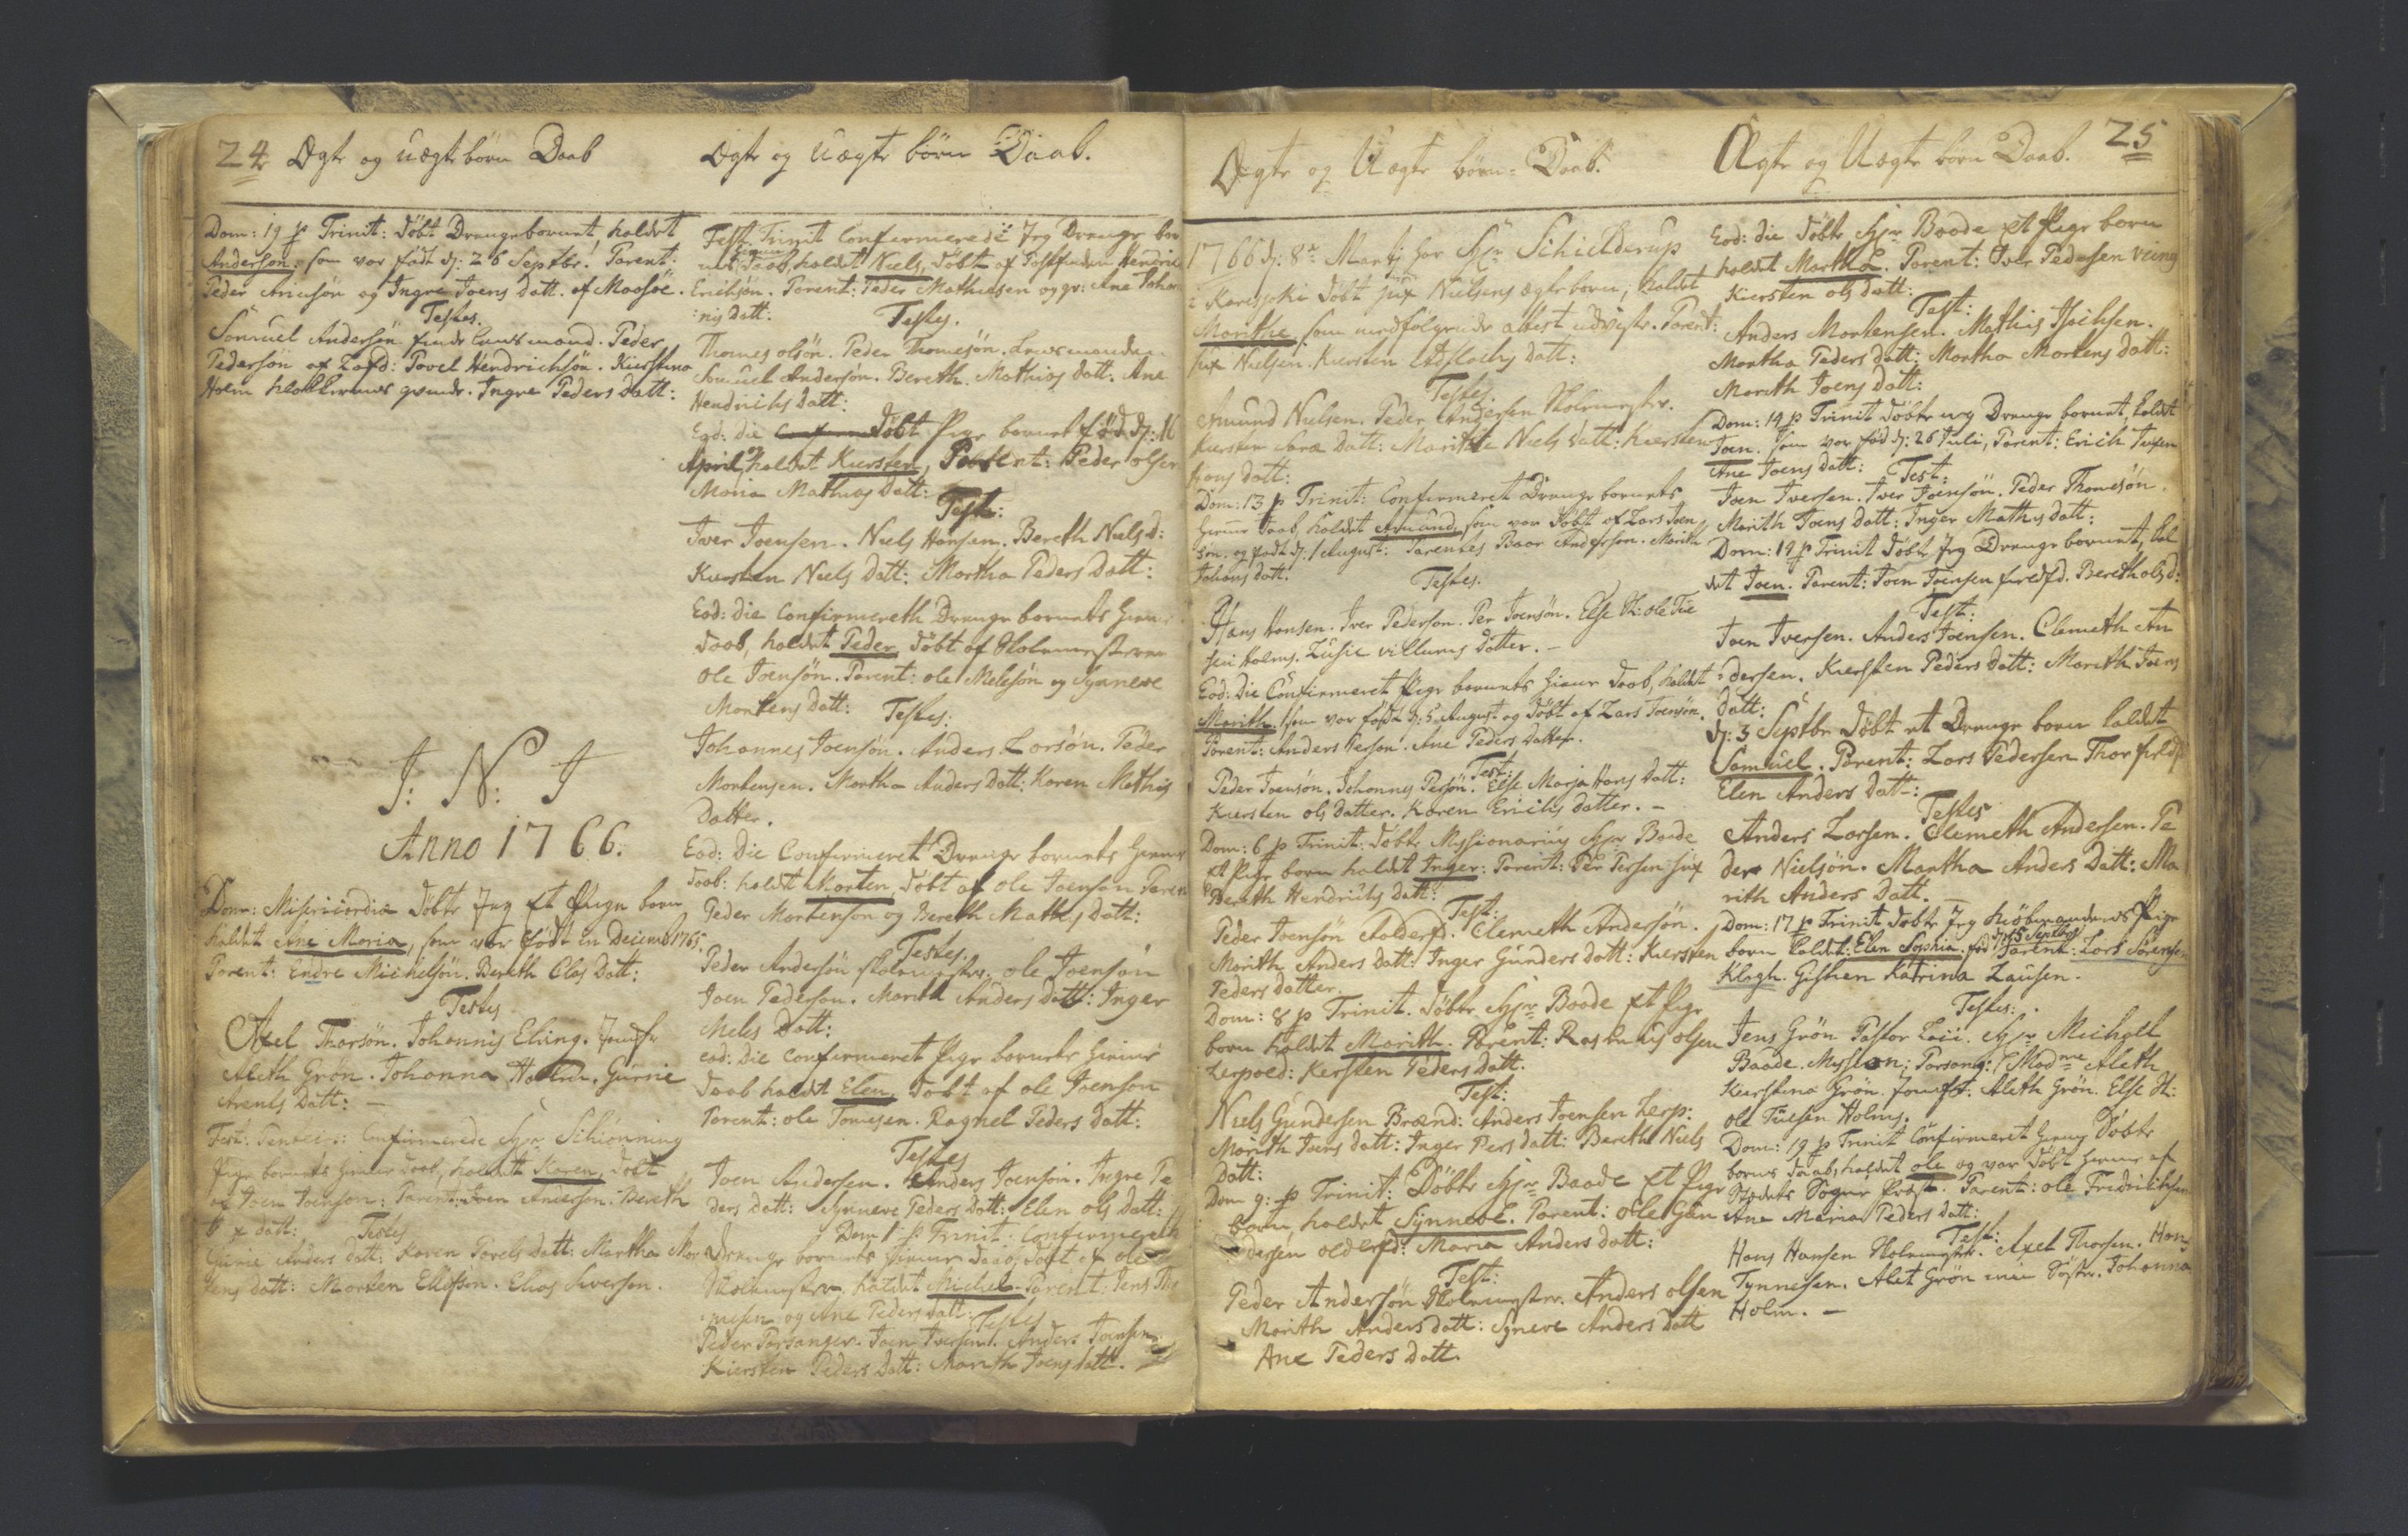 24 Ægte og Uægte børn Daab
Dom: 19 p Trinit: døbt Drengebornet, kaldet
Anderson, som var født d: 26 Septbr. Parent:
Peder Aricsön og Ingre Joens datt. af Maasöe.
Testes.
Samuel Andersön Lensmand. Peder
Pedersön af Laxf: Povel Hendrichsön. Kierstina
Holm Klokkerens qvinde. Ingre Peders datt:
J: N: J
Anno 1766.
Dom: Misericordia døbte Jeg et Pige børn
kaldet Ane Maria, som var født in Decemb 1765.
Parent: Endre Michelsön. Bereth Clas datt:
Testes
Axel Thorsön. Johannis Eling. Jomfr
Aleth Grön. Johanna Holm. Gurnie
Arents datt: –
Fest: Pentec:: Confirmerede Hr Schiønning
Pige bornets Hieme daab, kaldet Karen, døbt
af Joen Joensön: Parent: Joen Andersen. Bereth
datt: Testes
Gurie Anders datt: Karen Povels datt: Martha Mor
tens datt: Morten Ellefsen. Elias Siverson.
Ægte og Uægte börn Daab.
Fest. Trinit Confirmerede Jeg Drenge bor
nets daab, kaldet Niels, døbt af Hendric
Erichsön. Parent: Peder Mathiesen og qv: Ane Johan
nis datt: Testes.
Thomes olsön. Peder Thomesön. Lensmanden
Samuel Andersön. Bereth Mathias datt: Ane
Hendrichs datt:
Eod: die døbt Pige bornet född d: 16
April, kaldet Kiersten, Parent: Peder olsen
Maria Mathias datt:
Teste:
Iver Joensen. Niels Hansen. Bereth Niels d:
Kiersten Niels datt: Martha Peders datt:
Eod: die Confirmereth Drenge bornets Hieme
daab, kaldet Peder, döbt af Skolemesteren
ole Joensön. Parent: ole Melesön og Synneve
Mortens datt: Testes:
Johannes Joensön. Anders Larsön. Peder
Mortensen. Martha Anders datt: Karen Mathis
datter.
Eod: die Confirmeret Drenge bornets Hieme
daab: kaldt Morten, döbt af ole Joensen Paren
Peder Mortenson og Bereth Mathis datt:
Testes.
Peder Andersön skolemester. ole Joensön
Joen Pederson. Marith Anders datt: Inger
Meles datt:
eod: die Confirmeret Pige bornets Hieme
daab kaldt Elen, döbt af ole Joenson
Parent: ole Tomesen. Ragnel Peders datt:
Testes
Joen Andersen. Anders Joensön. Ingre Pe
ders datt: Synneve Peders datt: Elen ols datt:
Dom 1 p Trinit. Confirmereth
Drenge bornets Hieme daab, döbt af ole
Skolemester, kaldet Michel. Parent: Jens Tho
mesen og Ane Peders datt: Testes
Peder Porsanger. Joen Iversen. Anders Joensen.
Kiersten Peders datt: Marith Joens datt.
Ægte og Uægte börn = Daab.
1766 d: 8de Martij har Hr Schielderup
i Karasjoki döbt Nielsens ægte born, kaldet
Marithe, som medfølgende attest udviser. Parent:
Nielsen. Kiersten datt:
Testes.
Amund Nielsen. Peder Andersen Skolemester.
Kiersten datt: Marithe Niels datt: Kiersten
Hans datt:
Dom: 13 p Trinit: Confirmeret Drenge bornets
Hieme daab, kaldet Amund, som var döbt af Lars Joen
sön. og født d: 1 August: Parentes Baar Anderson. Marith
Johans datt. Testes.
Hans Hansen. Iver Pederson. Per Joensön. Else Sl: ole Tue
sen Holms. Zusie villums datter. –
Eod: Die Confirmeret Pige bornets Hieme daab, kaldet
Marith, som var född d: 5 August og döbt af Lars Joensön.
Parent: Anders Person. Ane Peders datter.
Test:
Peder Joensön. Johannes Persön. Else Marja Hans datt:
Kiersten ols datter. Karen Erichs datter. –
Dom: 6 p Trinit: döbte Missionarius Hr Baade
et Pige born kaldet Inger: Parent: Per Persen
Bereth Hendrichs datt:
Test:
Peder Joensön Clemeth Andersön.
Marith Anders datt: Inger Gunders datt: Kiersten
Peders datter.
Dom: 8 p Trinit. döbte Hr Baade et Pige
born kaldet Marith. Parent: Rasmus olsen
Lerpoed: Kersten Peders datt.
Test:
Niels Gundersen Brænd: Anders Joensen Lerp:
Marith Joens datt: Inger Pers datt: Bereth Niels
datt:
Dom 9: p Trinit: Döbte Hr Baade et Pige
børn, kaldet Synneve. Parent: ole Gun
dersen olderfd: Maria Anders datt:
Test:
Peder Andersön Skolemester. Anders olsen
Marith Anders datt: Syneve Anders datt
Ane Peders datt.
Ægte og Uægte börn Daab. 25
Eod: die döbte Hr Baade et Pige born
kaldet Martha. Parent: Iver Pedersen vieng
Kiersten ols datt:
Test:
Anders Mortensen. Mathis Isachsen.
Martha Peders datt: Martha Mortens datt:
Marith Joens datt:
Dom: 14 p Trinit döbte Drenge bornet, kaldet
Joen. som var föd d: 26 Juli, Parent: Erich
Ane Joens datt: Test:
Joen Iversen. Iver Joensön. Peder Thomesön.
Marith Joens datt: Inger Mathis datt:
Dom: 19 p Trinit döbte Jeg Drenge bornet, kal
det Joen. Parent: Joen Joensen. Bereth ols d:
Test:
Joen Iversen. Anders Joensen. Clemeth An
dersen. Kiersten Peders datt: Marith Joens
datt:
d: 3 Septbr döbt et Drenge born kaldet
Samuel. Parent: Lars Pedersen
Elen Anders datt:
Testes
Anders Larsen. Clemeth Andersen. Pe
der Nielsön. Martha Anders datt: Ma
rith Anders datt.
Dom: 17 p Trinit döbte Jeg Kiöbmandens Pige
born kaldet: Elen Sophia. föd Septbr Parent: Lars Sörensen
Klagh. Gishen Katrina Lausen.
Testes:
Jens Grön Pastor Loci. Hr Michael
Baade. Mission; Porsang: Madme Aleth
Kierstina Grön. Jomfr: Aleth Grön. Else Sl:
ole Tuesen Holms.
Dom: 19 p Trinit Confirmeret Hiemme Döbte
borns daab, kaldet ole og var döbt hieme af
Stædets Sogne Præst. Parent: ole Fredrichsen
Ane Maria Peders datt:
Test:
Hans Hansen Skolemester. Axel Thorsen. Hans
Tynnesen. Alet Grön min Søster. Johanna
Holm. –